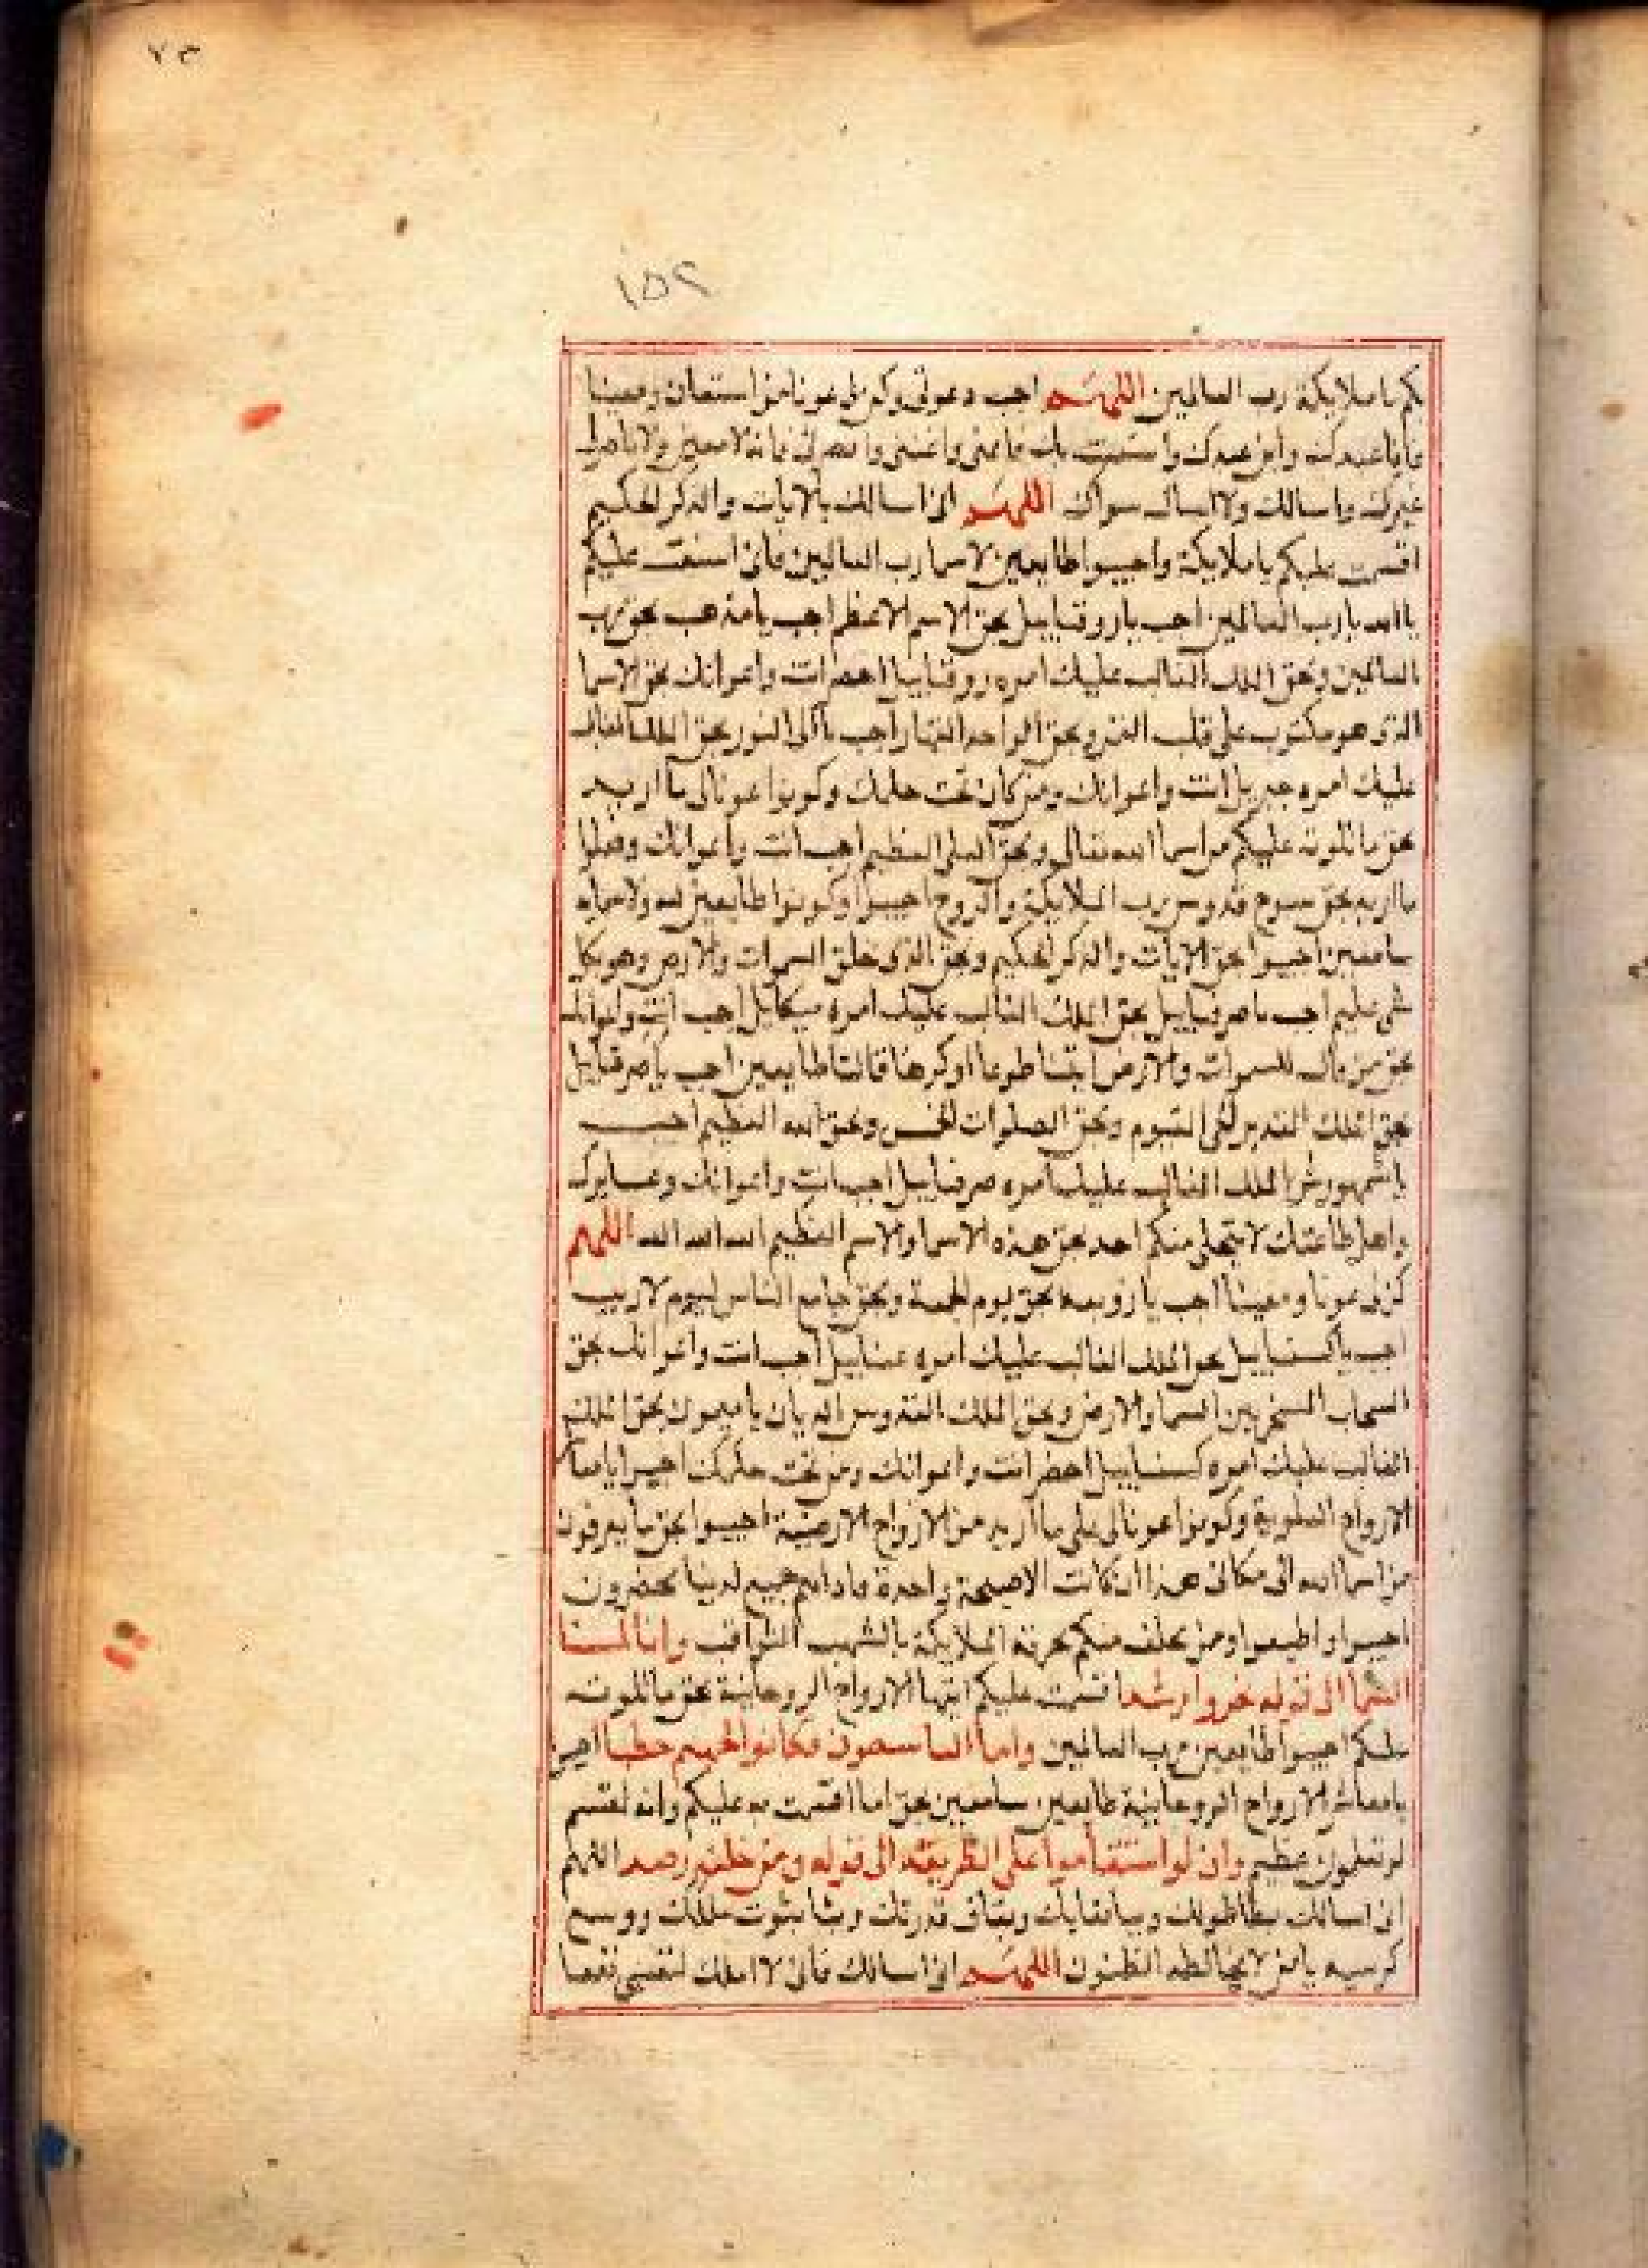 ٧٣
١٥٢
بكم يا ملايكة رب العالمين اللهم اجب دعوتي وكن لي عونا من استعان ومعينا
فأنا عبدك وابن عبدك واستعنت بك فاعني واغثني وانصرني فانه لا معين ولا ناصر
غيرك واسالك ولا اسال سواك اللهم اني اسالك بالايات والذكر الحكيم
اقسمت عليكم يا ملايكة واجيبوا طايعين لاسما رب العالمين فاني استعنت عليكم
يا الله يا رب العالمين اجب يا روقياييل بحق الاسم الاعظم اجب يا مذهب بحق رب
العالمين وبحق الملك الغالب عليك امره روقياييل احضر انت واعوانك بحق الاسما
الذي هو مكتوب على قلب القمر وبحق الواحد القهار اجب يا ابى النور بحق الملك الغالب
عليك امره جبريل انت واعوانك ومن كان تحت حكمك وكونوا عونا لي ما اريد
بحق ما تلوته عليكم من اسما الله تعالى وبحق العلي العظيم اجب انت واعوانك وفعلوا
ما اريد بحق سبوح قدوس رب الملايكة والروح اجيبوا وكونوا طايعين لله ولاسمايه
سامعين اجيبوا بحق الايات والذكر الحكيم وبحق الذي خلق السموات والارض وهو بكل
شي عليم اجب يا صرفياييل بحق الملك الغالب عليك امره ميكاييل اجب انت واعوانك
بحق من قال للسموات والارض ايتيا طوعا او كرها قالتا طايعين اجب يا صرفياييل
بحق الملك القدير الحي القيوم وبحق الصلوات الخمس وبحق الله العظيم اجب
يا شمهورش الملك الغالب عليك امره صرفياييل اجب انت واعوانك وعسايرك
واهل طاعتك لا يتخلى منكم احد بحق هذه الاسما والاسم العظيم الله الله الله اللهم
كن لي عونا ومعينا اجب يا زوبعه بحق يوم الجمعة وبحق جامع الناس ليوم لا ريب
اجب يا كسفياييل بحق الملك الغالب عليك امره عنياييل اجب انت واعوانك بحق
السحاب المسخر بين السما والارض وبحق الملك القدوس الديان يا ميمون بحق الملك
الغالب عليك امره كسفياييل احضر انت واعوانك ومن تحت حكمك اجيبوا يا معاشر
الارواح العلوية وكونوا عونا لي على ما اريد من الارواح الارضية اجيبوا بحق ما تعرفون
من اسما الله الى مكاني هذا ان كانت الا صيحة واحدة فاذا هم جميع لدينا محضرون
اجيبوا واطيعوا ومن يخلف منكم تحرقه الملايكة بالشهب الثواقب وانا لمسنا
السما الى قوله عز وجل رشدا اقسمت عليكم ايتها الارواح الروحانية بحق ما تلوته
عليكم اجيبوا طايعين رب العالمين واما القاسطون فكانوا لجهنم حطبا اجيبوا
يا معاشر الارواح الروحانية طايعين سامعين بحق اما اقسمت به عليكم وانه لقسم
لو تعلمون عظيم وان لو استقاموا على الطريقة الى قوله ومن خلفه رصدا اللهم
اني اسالك بطا طولك وبيا بقايك وبقاف قدرتك وبثا ثبوت ملكك ووسع
كرسيه يا من لا تخالطه الظنون اللهم اني اسالك فاني لا املك لنفسي نفعا